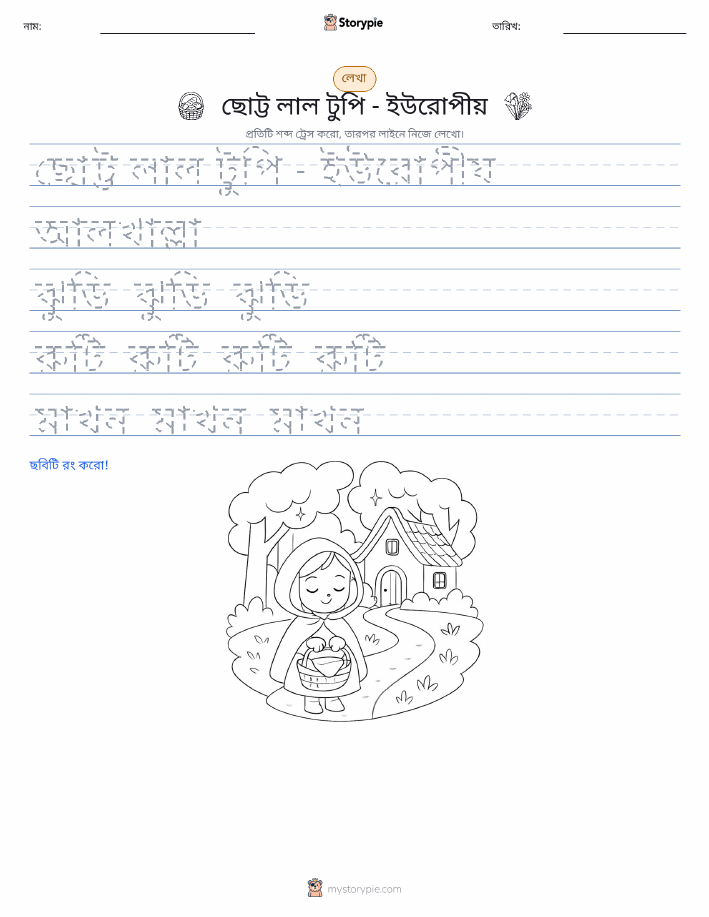 নাম: Storypie তারিখ:
লেখা
ছোট্ট লাল টুপি - ইউরোপীয়
প্রতিটি শব্দ ট্রেস করো, তারপর লাইনে নিজে লেখো।
ছোট্ট লাল টুপি - ইউরোপীয়
আলখাল্লা
ঝুড়ি ঝুড়ি ঝুড়ি
রুটি রুটি রুটি রুটি
মাখন মাখন মাখন
ছবিটি রং করো!
mystorypie.com